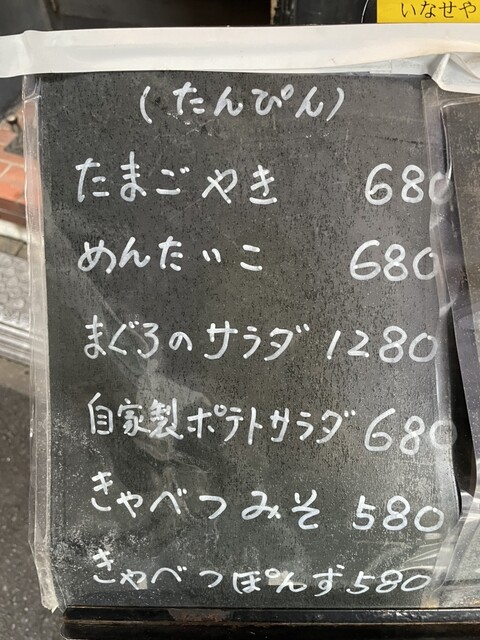 いなせや
(たんぴん)
たまごやき 680
めんたいこ 680
まぐろのサラダ 1280
自家製ポテトサラダ 680
きゃべつみそ 580
きゃべつぽんず 580